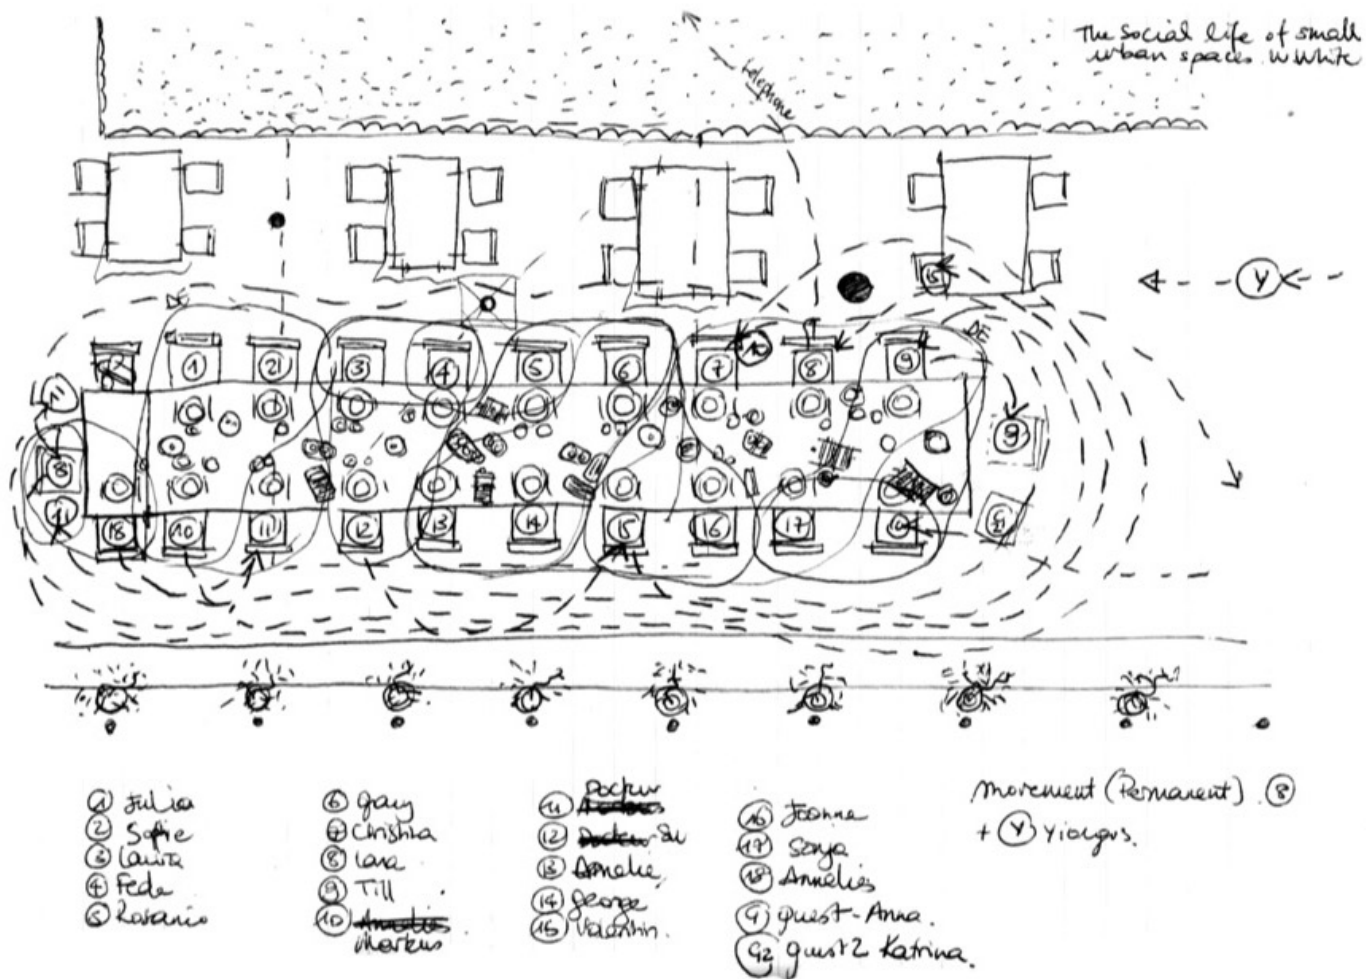 The social life of small
urban spaces. W.White
telephone
DE
DE
Y
15
10
1
2
3
4
5
6
7
8
9
9
8
11
18
10
11
12
13
14
15
16
17
G1
1 Julia
2 Sofie
3 Laura
4 Fede
5 Rosario
6 Gary
7 Christina
8 Lara
9 Till
10
Markus
11
12 Su
13 Amelie
14 George
15 Valentin.
16 Joanna
17 Sonja
18 Annelies
G guest-Anna.
G2 guest 2 Katrina.
movement (Permanent). 8
+ Y Yiorgos.